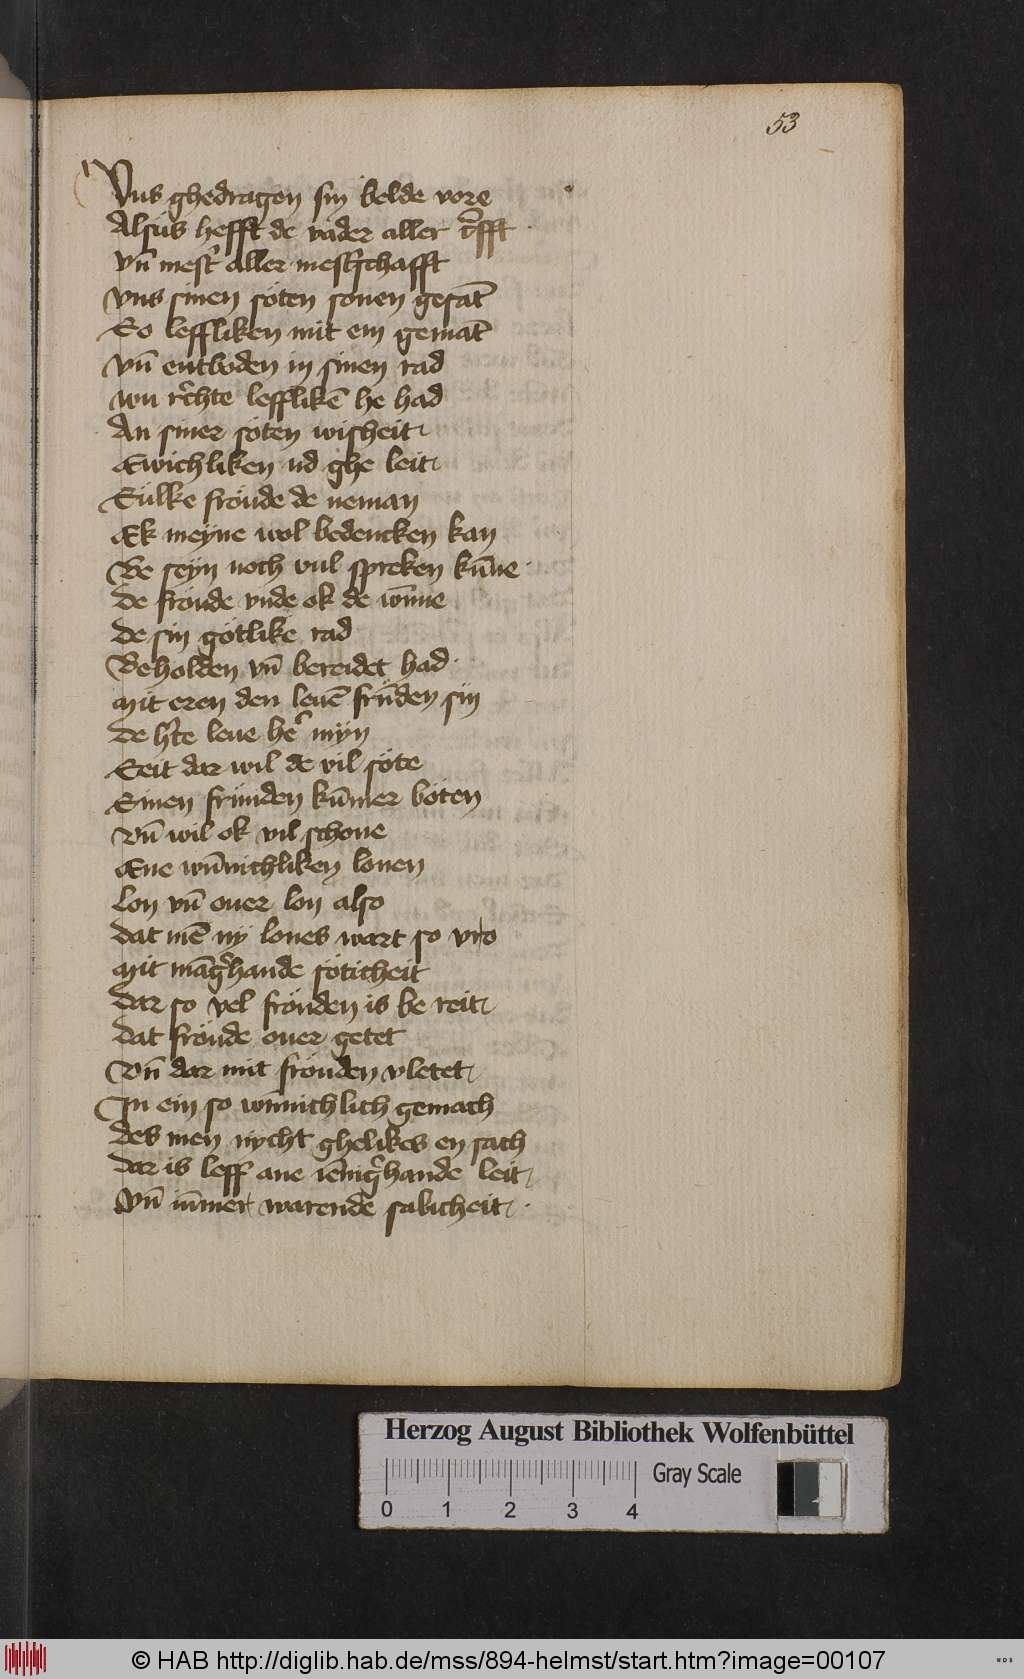 53
Vns ghedragen sin belde vore
Alsus hefft de vader aller c̄fft
vn̄ mest' aller mest'schafft
vns sinen söten sonen gesāt
So leffliken mit em gemāt
vn̄ entboden in sinen rad
wu rechte lefflikē he had
An siner söten wisheit
Ewichliken vd ghe leit
Sülke fröude de neman
Ek meyne wol bedencken kan
We seyn noch vul spreken kūne
De fröude vnde ok de wn̄ne
De sin götlike rad
Beholden vn̄ bereidet had
Mit eren den leuē frūden sin
De h'te leue he' myn
Seit dar wil de vil söte
Sinen frunden kūmer böten
Vn̄ wil ok vil schone
Ene wūnichliken lonen
Lon vn̄ ouer lon also
Dat mē ny lones wart so vro
Mit māg'hande söticheit
Dar so vel fröuden is be reit
Dat fröude ouer getet
Vn̄ dar mit fröuden vletet
In ein so wnnichlich gemach
Des men nycht ghelikes en sach
Dar is leff ane iēnig'hande leit
Vn̄ iūmer warende salicheit
Herzog August Bibliothek Wolfenbüttel
Gray Scale
0 1 2 3 4
© HAB http://diglib.hab.de/mss/894-helmst/start.htm?image=00107